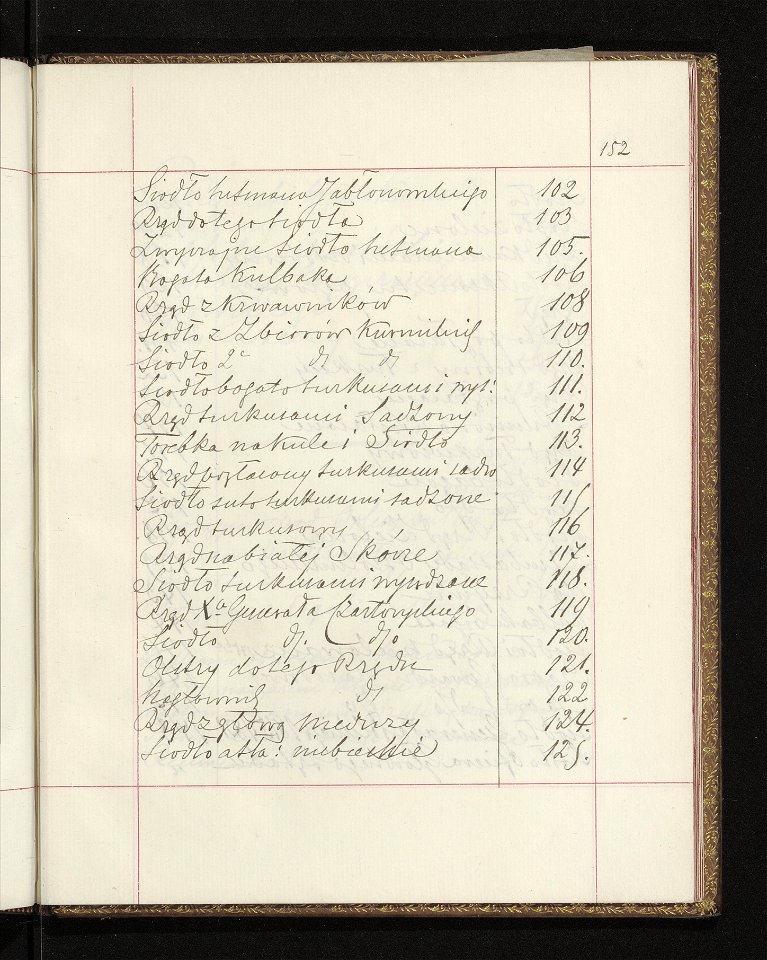 152
Siodło hetmana Jabłonowskiego 102
Rząd do tego siodła 103
Zwyczajne siodło hetmana 105.
Bogata Kulbaka 106
Rząd z Krwawników 108
Siodło z Zbiorów Kurnickich 109
Siodło 2e dº dº 110.
Siodło bogato turkusami wys: 111.
Rząd turkusami Sadzony 112
Torebka na kule i Siodło 113.
Rząd pozłacany turkusami sadzo 114
Siodło suto turkusami sadzone 115
Rząd turkusowy 116
Rząd na białej Skórze 117.
Siodło turkusami wysadzane 118.
Rząd Xa Generała Czartoryskiego 119
Siodło dº. dº. 120.
Olstry do tego Rzędu 121.
Nagłownik dº 122
Rząd z głową meduzy 124.
Siodło atła: niebieskie 125.